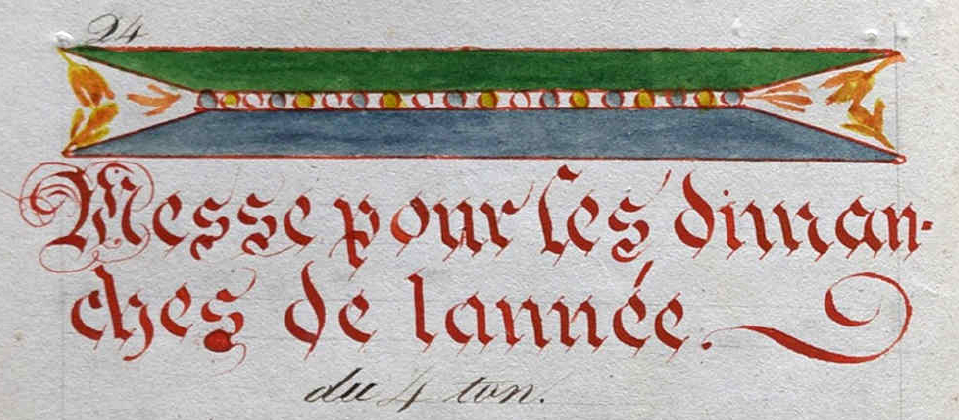 24
Messe pour les diman-
ches de lannée.
du 4 ton.